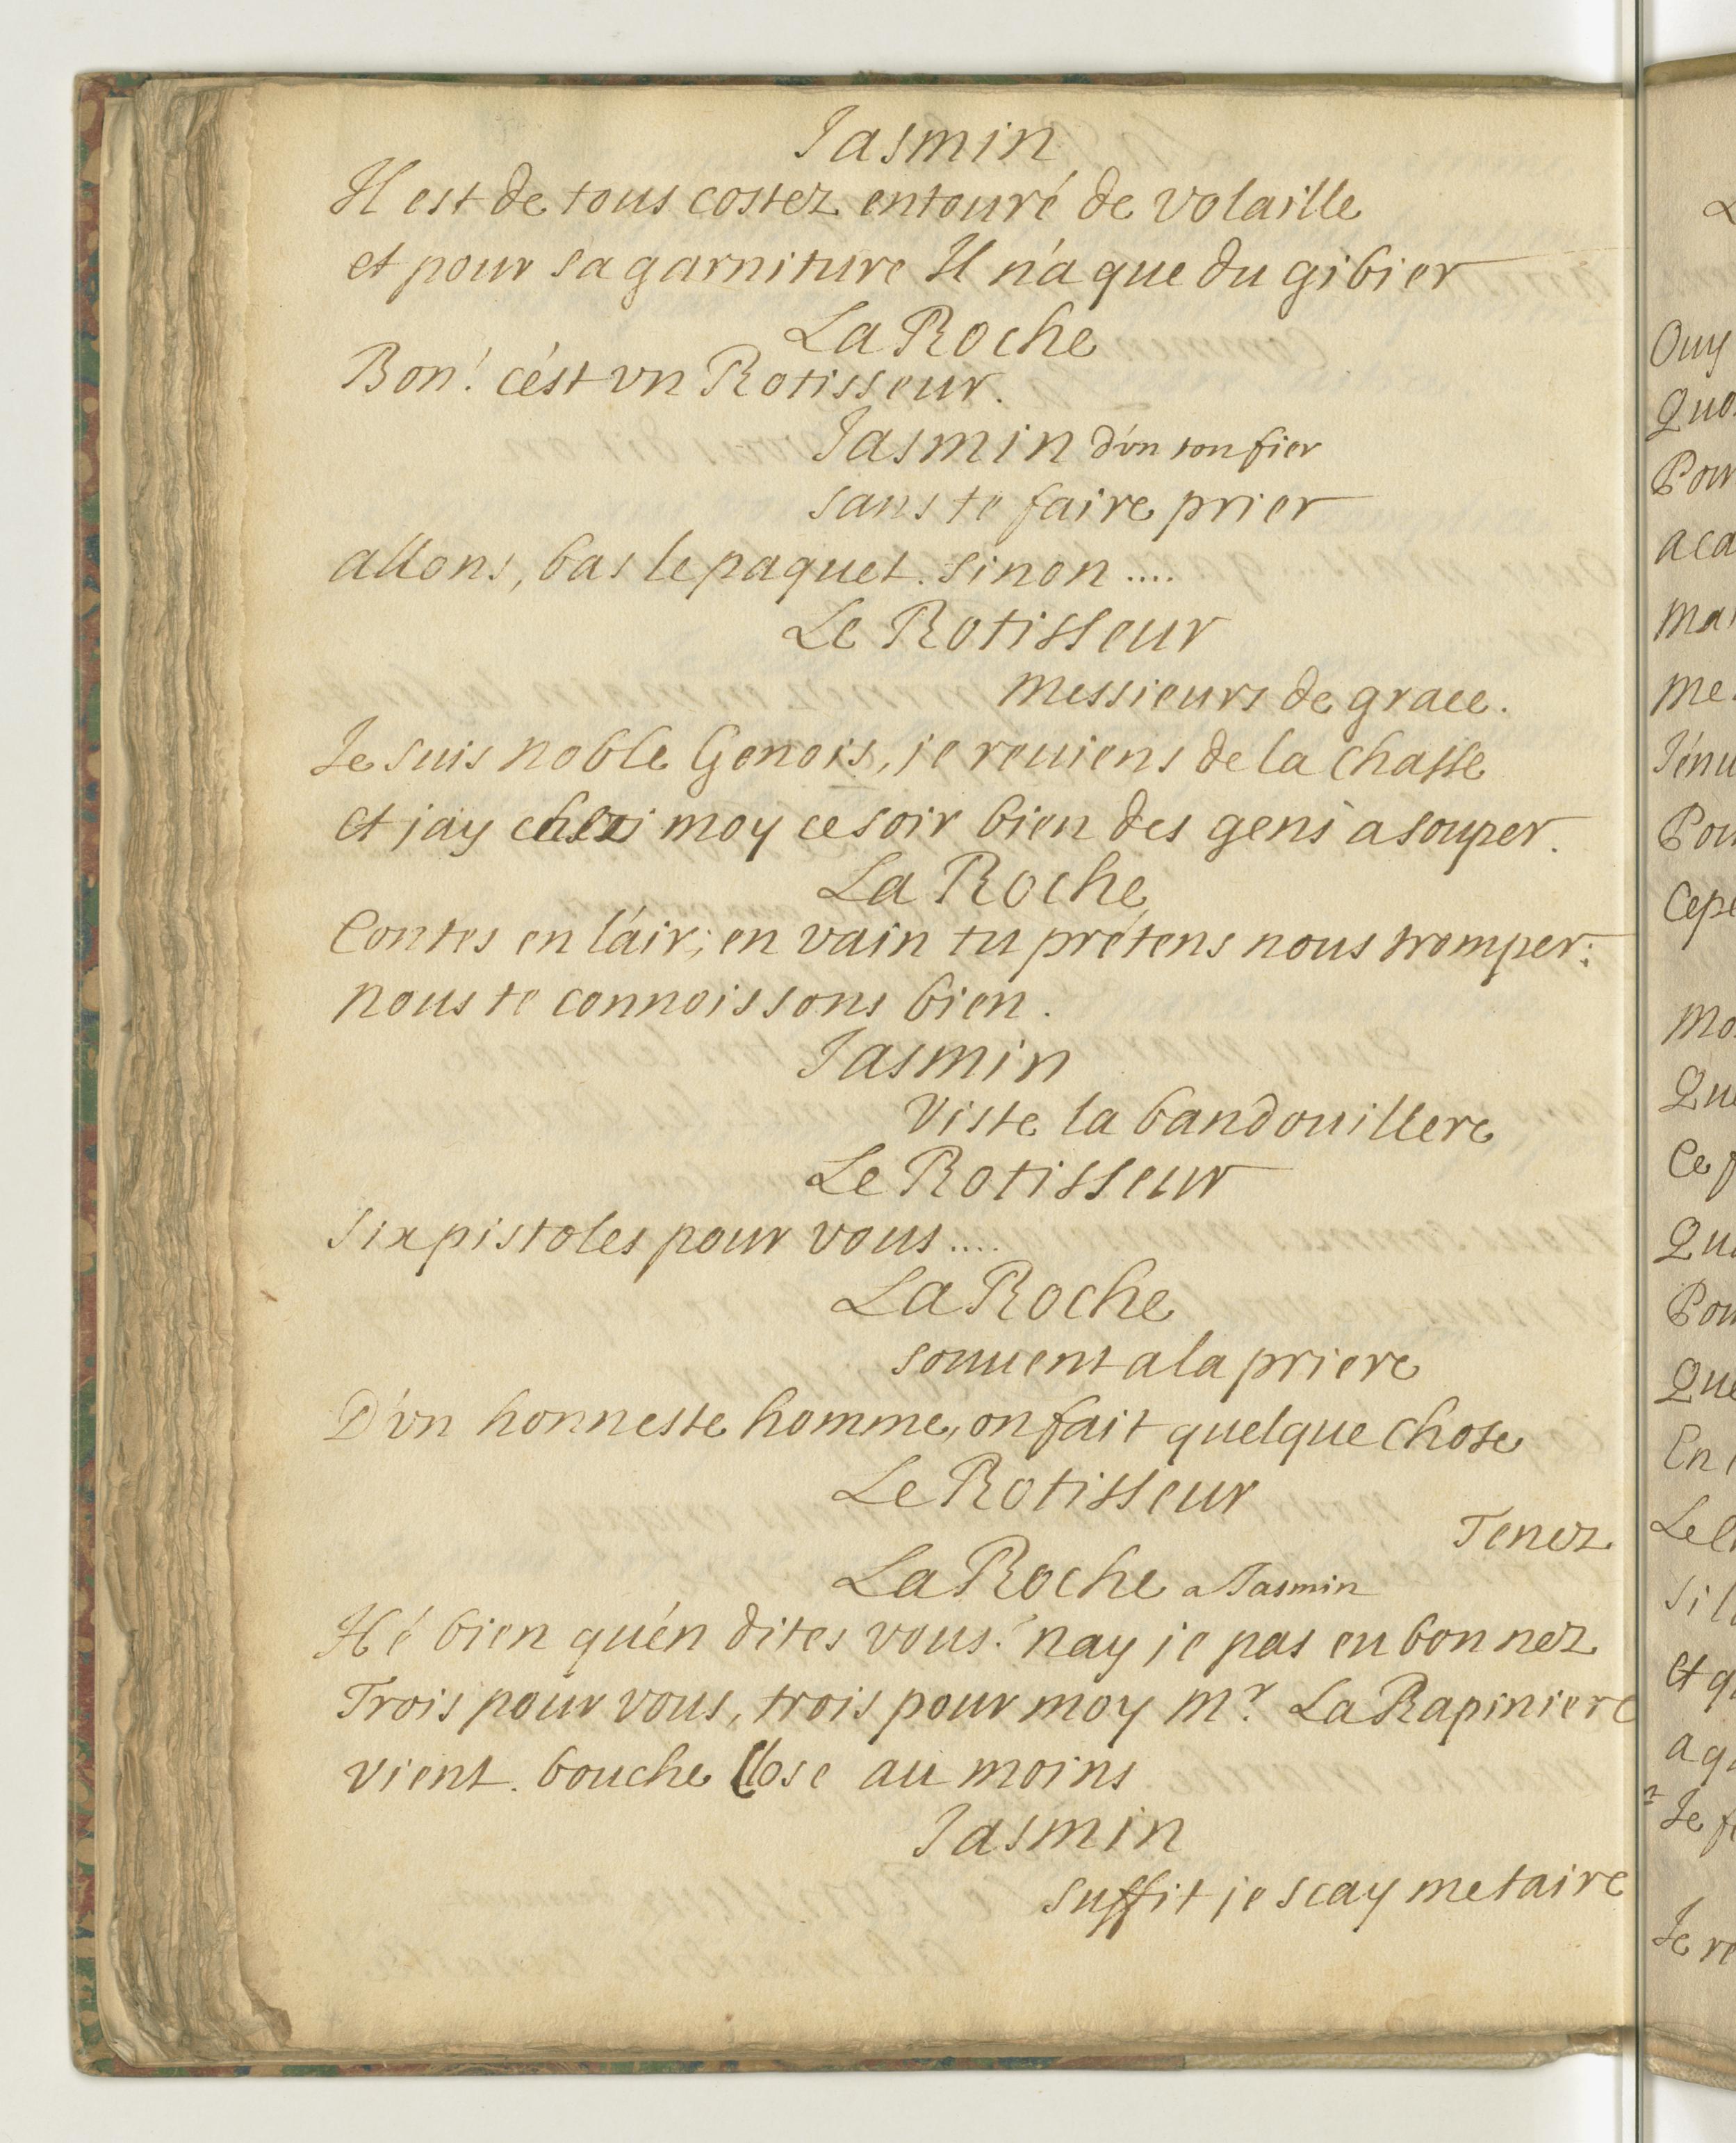 Jasmin
Il est de tous costez entouré de volaille
et pour sa garniture Il n'a que du gibier
La Roche
Bon! c'est vn Rotisseur.
Jasmin d'vn ton fier
sans te faire prier
allons, bas le paquet. sinon ....
Le Rotisseur
messieurs de grace.
Je suis noble Genois, je reuiens de la chasse
et jay chez moy ce soir bien des gens a souper.
La Roche
Contes en l'air; en vain tu prétens nous tromper:
nous te connoissons bien.
Jasmin
Viste la bandouillere
Le Rotisseur
six pistoles pour vous ....
La Roche
souuent a la priere
D'vn honneste homme, on fait quelque chose
Le Rotisseur
Tenez
La Roche a Jasmin
Hé bien qu'en dites vous? nay je pas eu bon nez
Trois pour vous, trois pour moy Mr. La Rapiniere
vient. bouche close au moins
Jasmin
suffit je scay me taire
Ouy
Pour
aca
mai
me
Pour
Cepe
mo
Que
Ce
Qua
Pour
Que
En
Le
Si
et q
a q
Je f
Je re